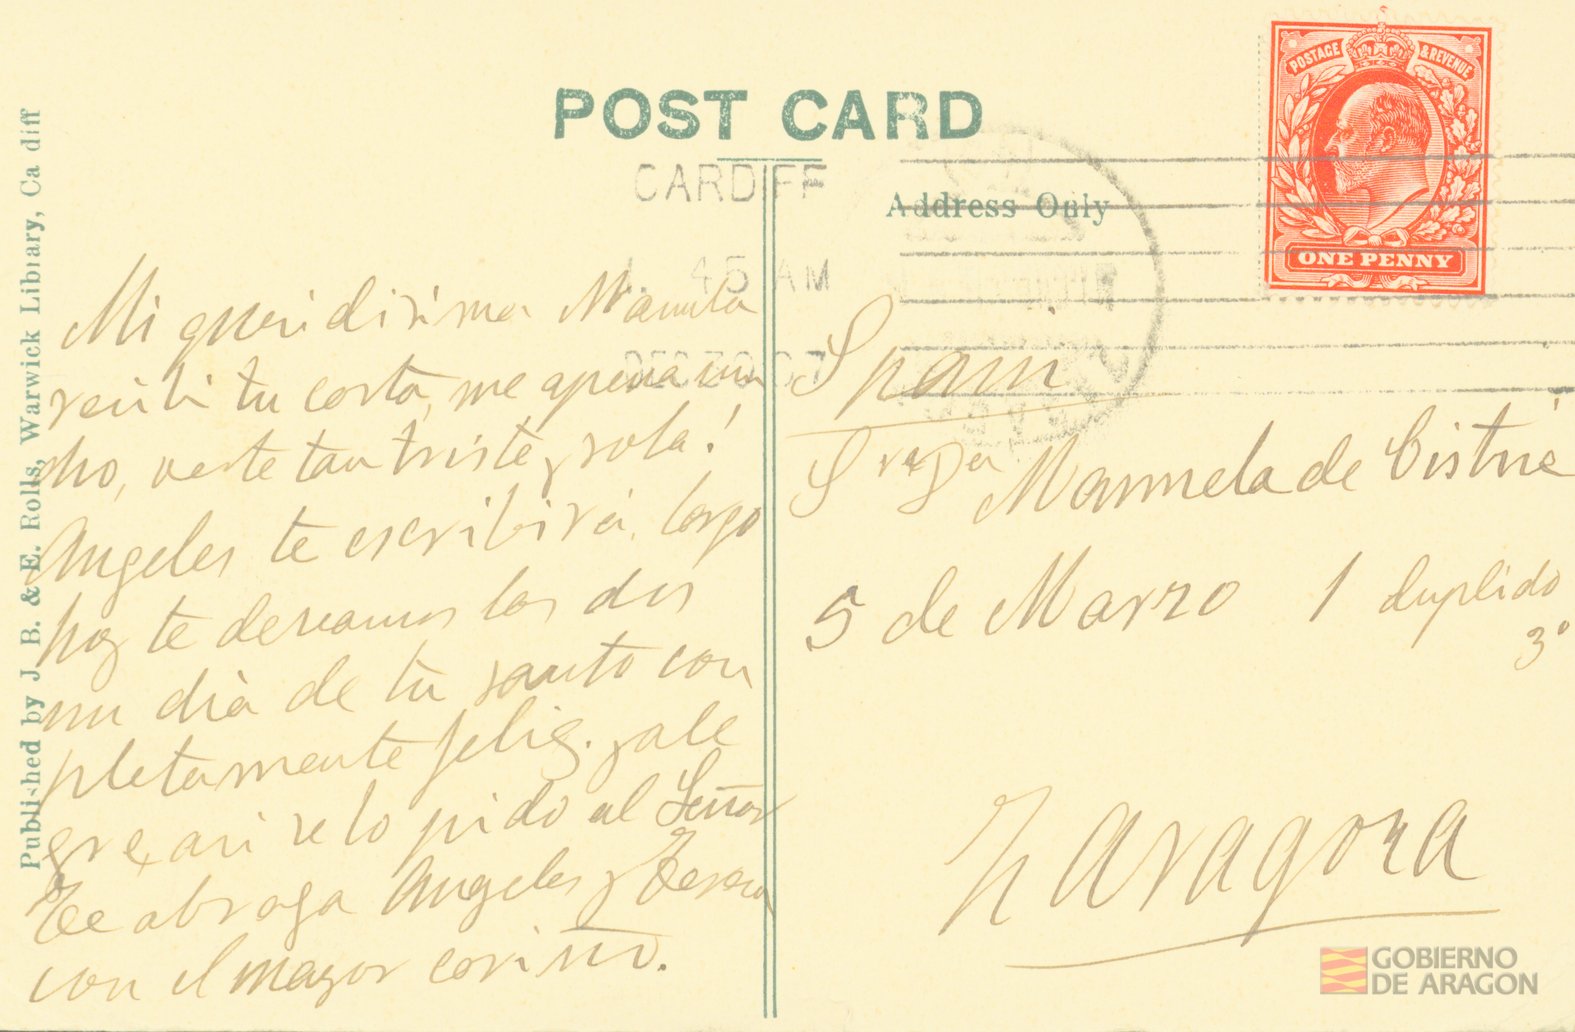 POST CARD
Address Only
POSTAGE & REVENUE
ONE PENNY
CARDIFF
1. 45 AM
DEC 30 07
Published by J. B. & E. Rolls, Warwick Library, Ca diff
Mi queridisima Manuela
recibi tu carta, me apena mu
cho, verte tan triste y sola!
Angeles te escribirá, largo
hoy te deseamos las dos
un dia de tu santo com
pletamente feliz. y ale
gre, asi se lo pido al Señor
Te abraza Angeles y Teresa
con el mayor cariño.
Spain
Sra Da Manuela de Cistué
5 de Marzo 1 duplido
3º
Zaragoza
GOBIERNO
DE ARAGON